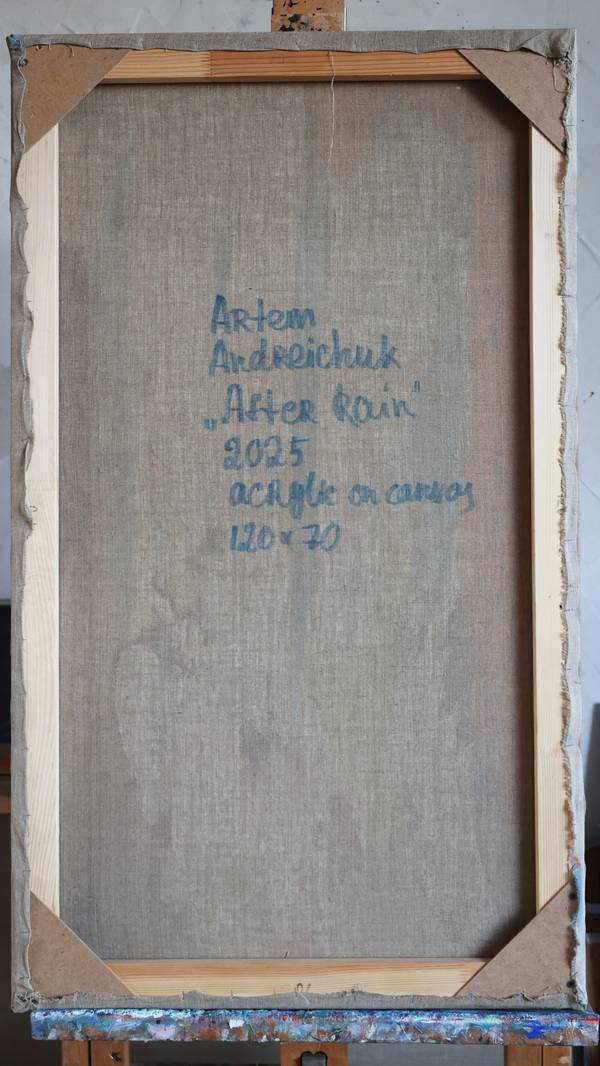 Artem
Andreichuk
„After Rain"
2025
acrylic on canvas
120 x 70